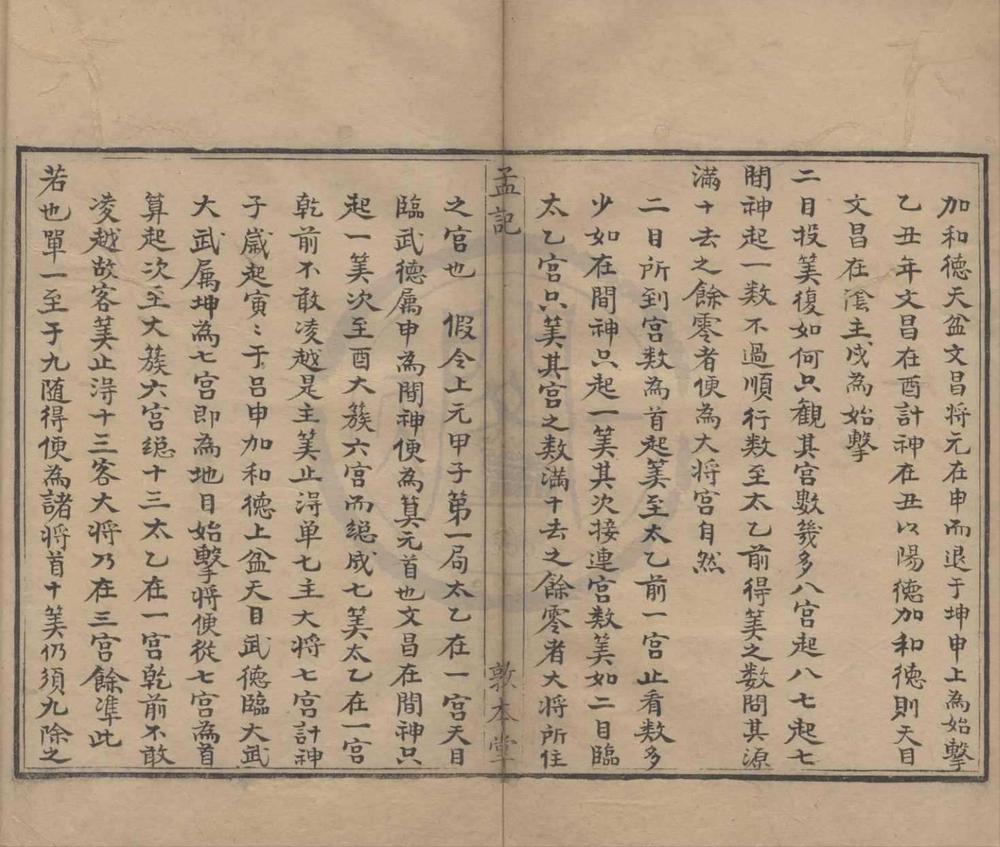 加和德天盆文昌将元在申而退于坤申上為始擊
乙丑年文昌在酉計神在丑以陽德加和德則天目
文昌在陰主戌為始擊
二目投筭復如何只觀其宮數幾多八宮起八七起七
間神起一数不過順行数至太乙前得筭之數問其源
滿十去之餘零者便為大将宮自然
二目所到宮数為首起筭至太乙前一宮止看数多
少如在間神只起一筭其次接連宮数筭如二目臨
太乙宮只筭其宮之数滿十去之餘零者大将所住
孟記
敦本堂
之宮也　假令上元甲子第一局太乙在一宮天目
臨武德屬申為間神便為筭元首也文昌在間神只
起一筭次至酉大簇六宮而緫成七筭太乙在一宮
乾前不敢凌越是主筭止淂单七主大将七宮計神
子嵗起寅〻于呂申加和德上盆天目武德臨大武
大武属坤為七宮即為地目始擊将便從七宮為首
算起次至大簇六宮緫十三太乙在一宮乾前不敢
凌越故客筭止淂十三客大将乃在三宮餘凖此
若也單一至于九随得便為諸将首十筭仍須九除之